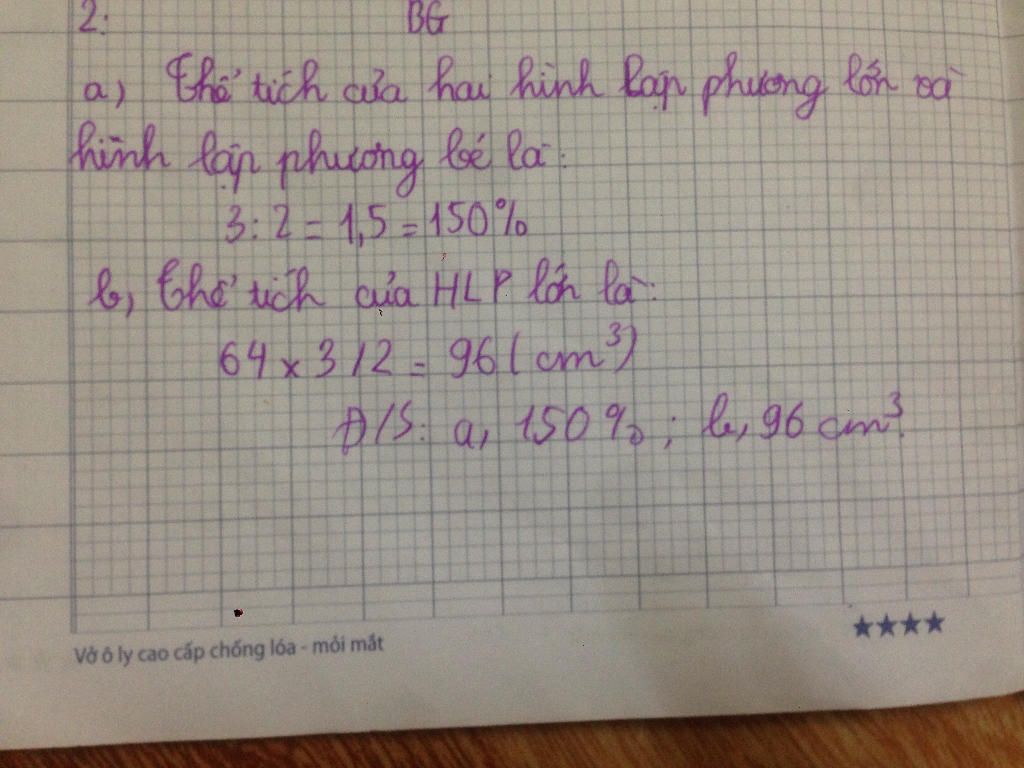 2: BG
a) Thể tích của hai hình lập phương lớn và
hình lập phương bé là:
3 : 2 = 1,5 = 150%
b, Thể tích của HLP lớn là:
64 x 3/2 = 96 (cm³)
Đ/S: a, 150% ; b, 96 cm³.
Vở ô ly cao cấp chống lóa - mỏi mắt